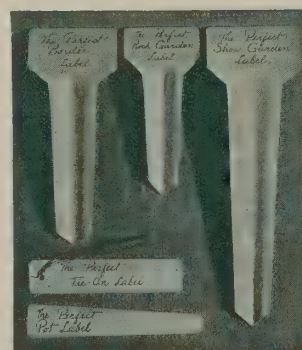 The "Perfect"
Border
Label
The "Perfect"
Rock Garden
Label
The "Perfect"
Show Garden
Label.
The "Perfect"
Tie-On Label
The "Perfect"
Pot Label